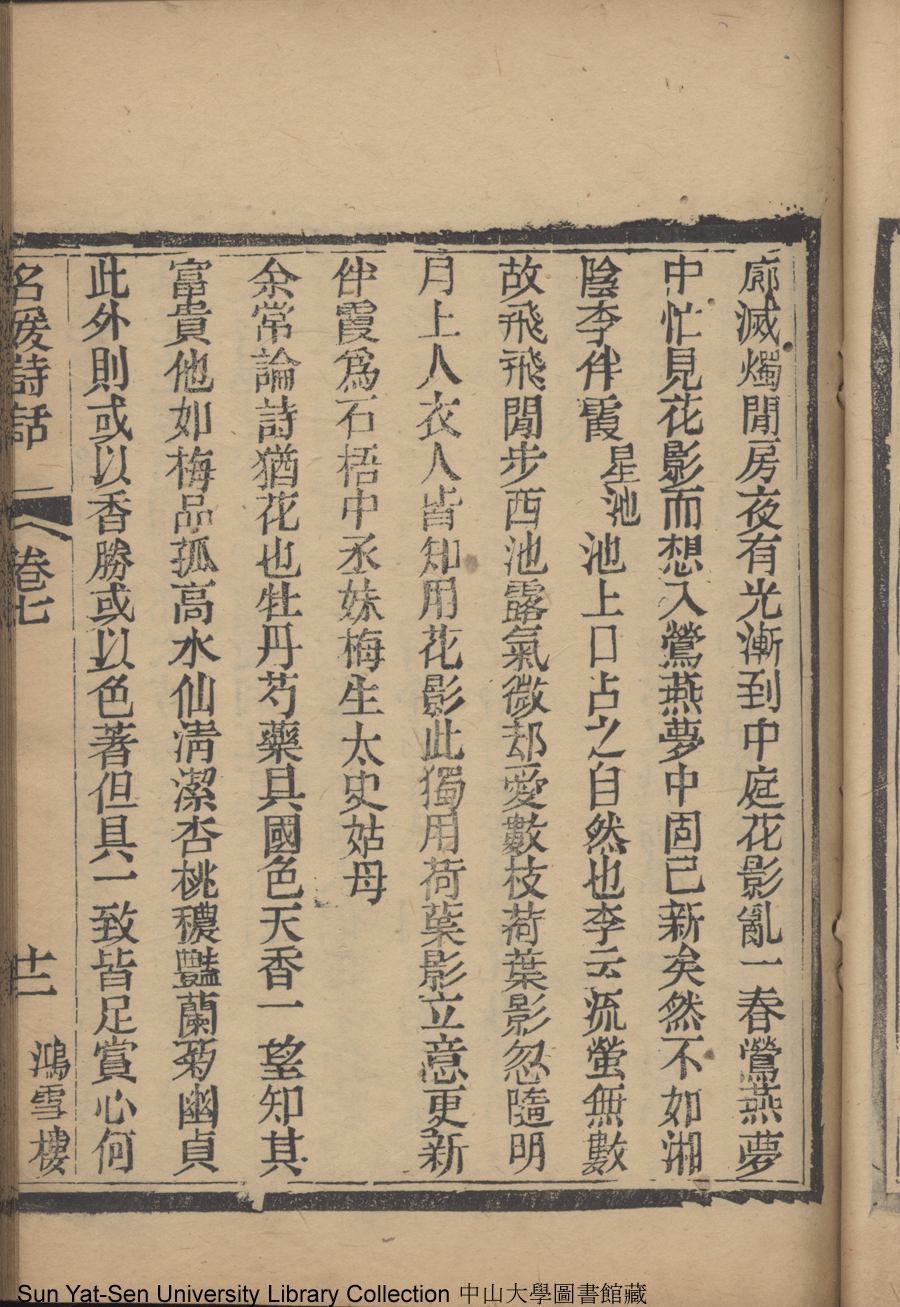 廊滅燭閒房夜有光漸到中庭花影亂一春鶯燕夢
中忙見花影而想入鶯燕夢中固已新矣然不如湘
陰李伴霞星池池上口占之自然也李云流螢無數
故飛飛閒步西池露氣微却愛數枝荷葉影忽隨明
月上人衣人皆知用花影此獨用荷葉影立意更新
伴霞爲石梧中丞妹梅生太史姑母
余常論詩猶花也牡丹芍藥具國色天香一望知其
富貴他如梅品孤高水仙清潔杏桃穠豔蘭菊幽貞
此外則或以香勝或以色著但具一致皆足賞心何
名媛詩話 卷七 十二 鴻雪樓
Sun Yat-Sen University Library Collection 中山大學圖書館藏